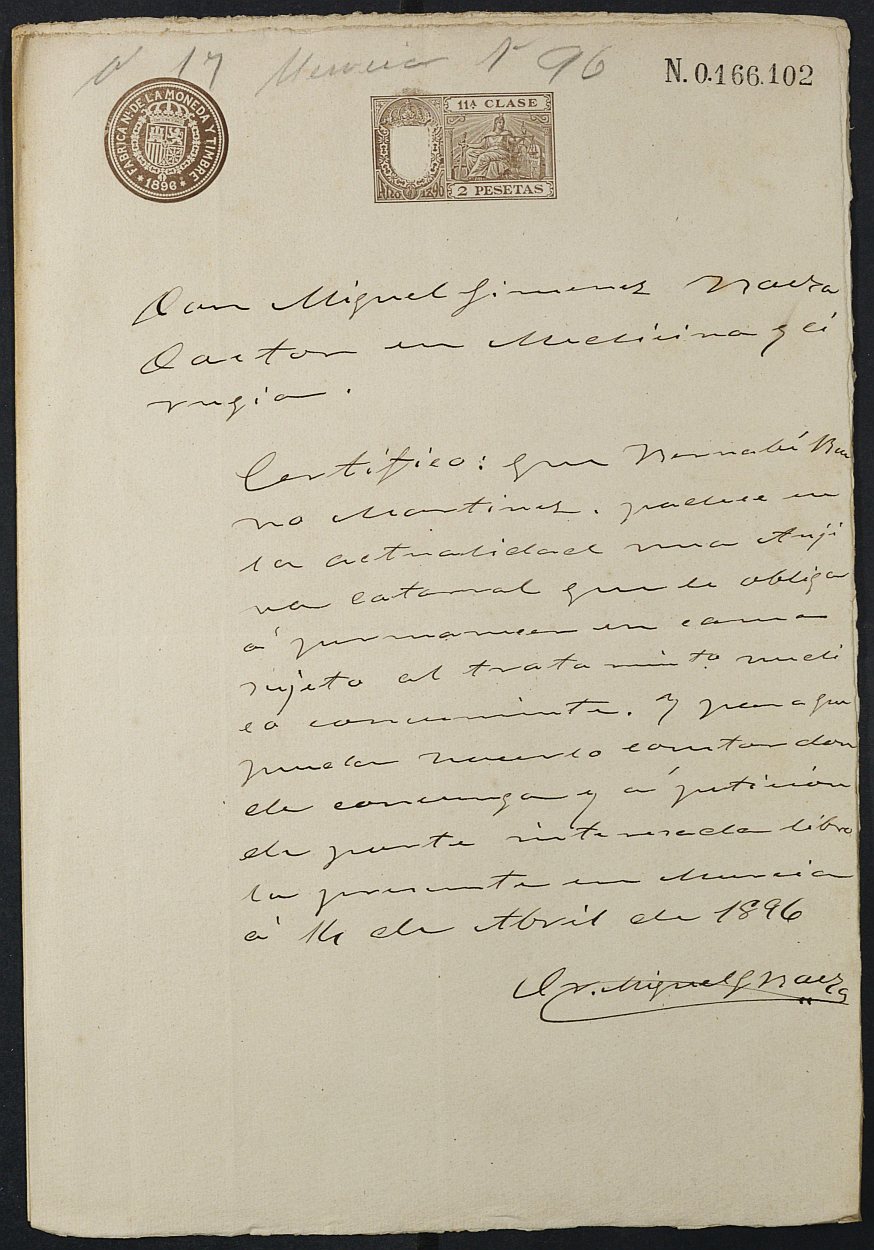 Nº 17 Murcia Nº 96
N. 0.166.102
FABRICA Nl. DE LA MONEDA Y TIMBRE
* 1896 *
11ª CLASE
2 PESETAS
Don Miguel Gimenez Baeza
Doctor en Medicina y Ci
rugia.
Certifico: que Bernabé
no Martinez. padece en
la actualidad una Anji
na catarral que le obliga
á permanecer en cama
sujeto al tratamiento medi
co concerniente. Y para que
pueda hacerlo constar don
de convenga y á petición
de parte interesada libro
la presente en Murcia
á 14 de Abril de 1896
Dr. Miguel G Baeza